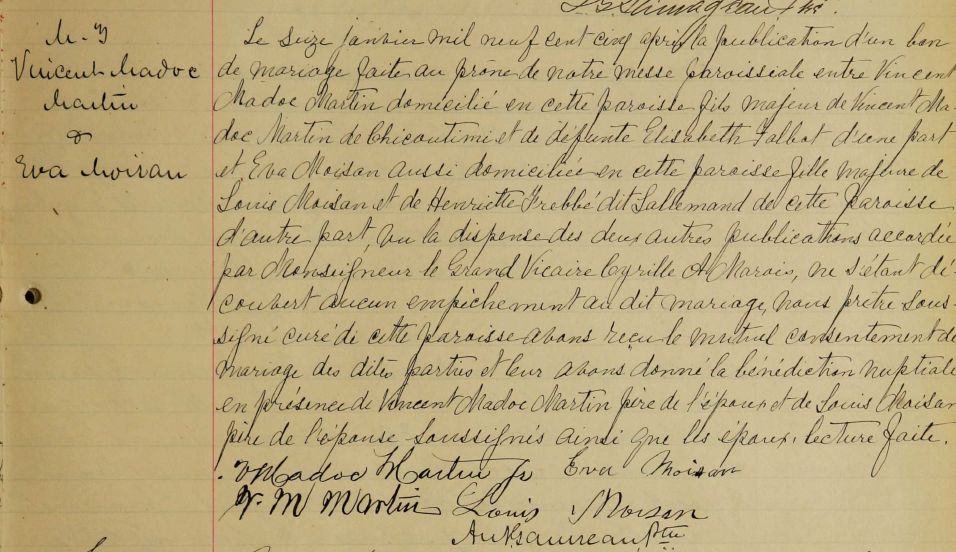 M. 3
Vincent Madoc
Martin
&
Eva Moisan
Le seize janvier mil neuf cent cinq après la publication d'un ban
de mariage faite au prône de notre messe paroissiale entre Vincent
Madoc Martin domicilié en cette paroisse fils majeur de Vincent Ma-
doc Martin de Chicoutimi et de défunte Elisabeth Talbot d'une part
et Eva Moisan aussi domiciliée en cette paroisse fille majeure de
Louis Moisan et de Henriette Frebbé dit Lallemand de cette paroisse
d'autre part, vu la dispense des deux autres publications accordée
par Monseigneur le Grand Vicaire Cyrille A Marois, ne s'étant dé-
couvert aucun empêchement au dit mariage, nous prêtre sous-
signé curé de cette paroisse avons reçu le mutuel consentement de
mariage des dites parties et leur avons donné la bénédiction nuptiale
en présence de Vincent Madoc Martin père de l'époux et de Louis Moisan
père de l'épouse soussignés ainsi que les époux. lecture faite.
V Madoc Martin Jr Eva Moisan
V. M Martin Louis Moisan
Ptre